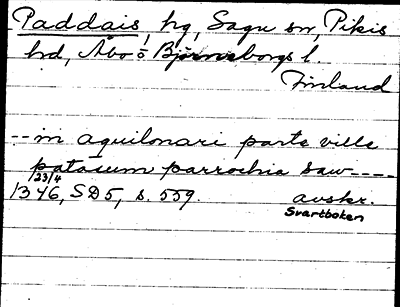 Paddais, hg, Sagu sn, Pikis
hrd, Åbo o Björneborgs l.
Finland
--- in aquilonari parte ville
patasum parrochia saw----
1346, 23/4, SD5, s. 559. avskr.
Svartboken